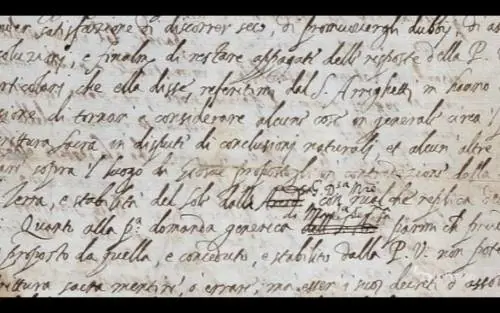 satisfazione di discorrer seco, di promuovergli dubbij, di as
soluzioni, e finalm. di restare appagati delle risposte della P.
articolari, che ella disse, referitimi dal S. Arrighetti, m' hano
sione di tornar a considerare alcune cose in generale circa
rittura sacra in dispute di conclusioni naturali, et alcun' altre
sopra 'l luogo di Giosuè propostoli in contradizione della
Terra, e stabilità del sole dalla con qualche replica
Quanto alla pa. domanda generica parmi che
proposto da quella, e conceduto, e stabilito dalla P. V. non pote
rittura sacra mentire, o errare, ma esser i suoi decreti d' asso